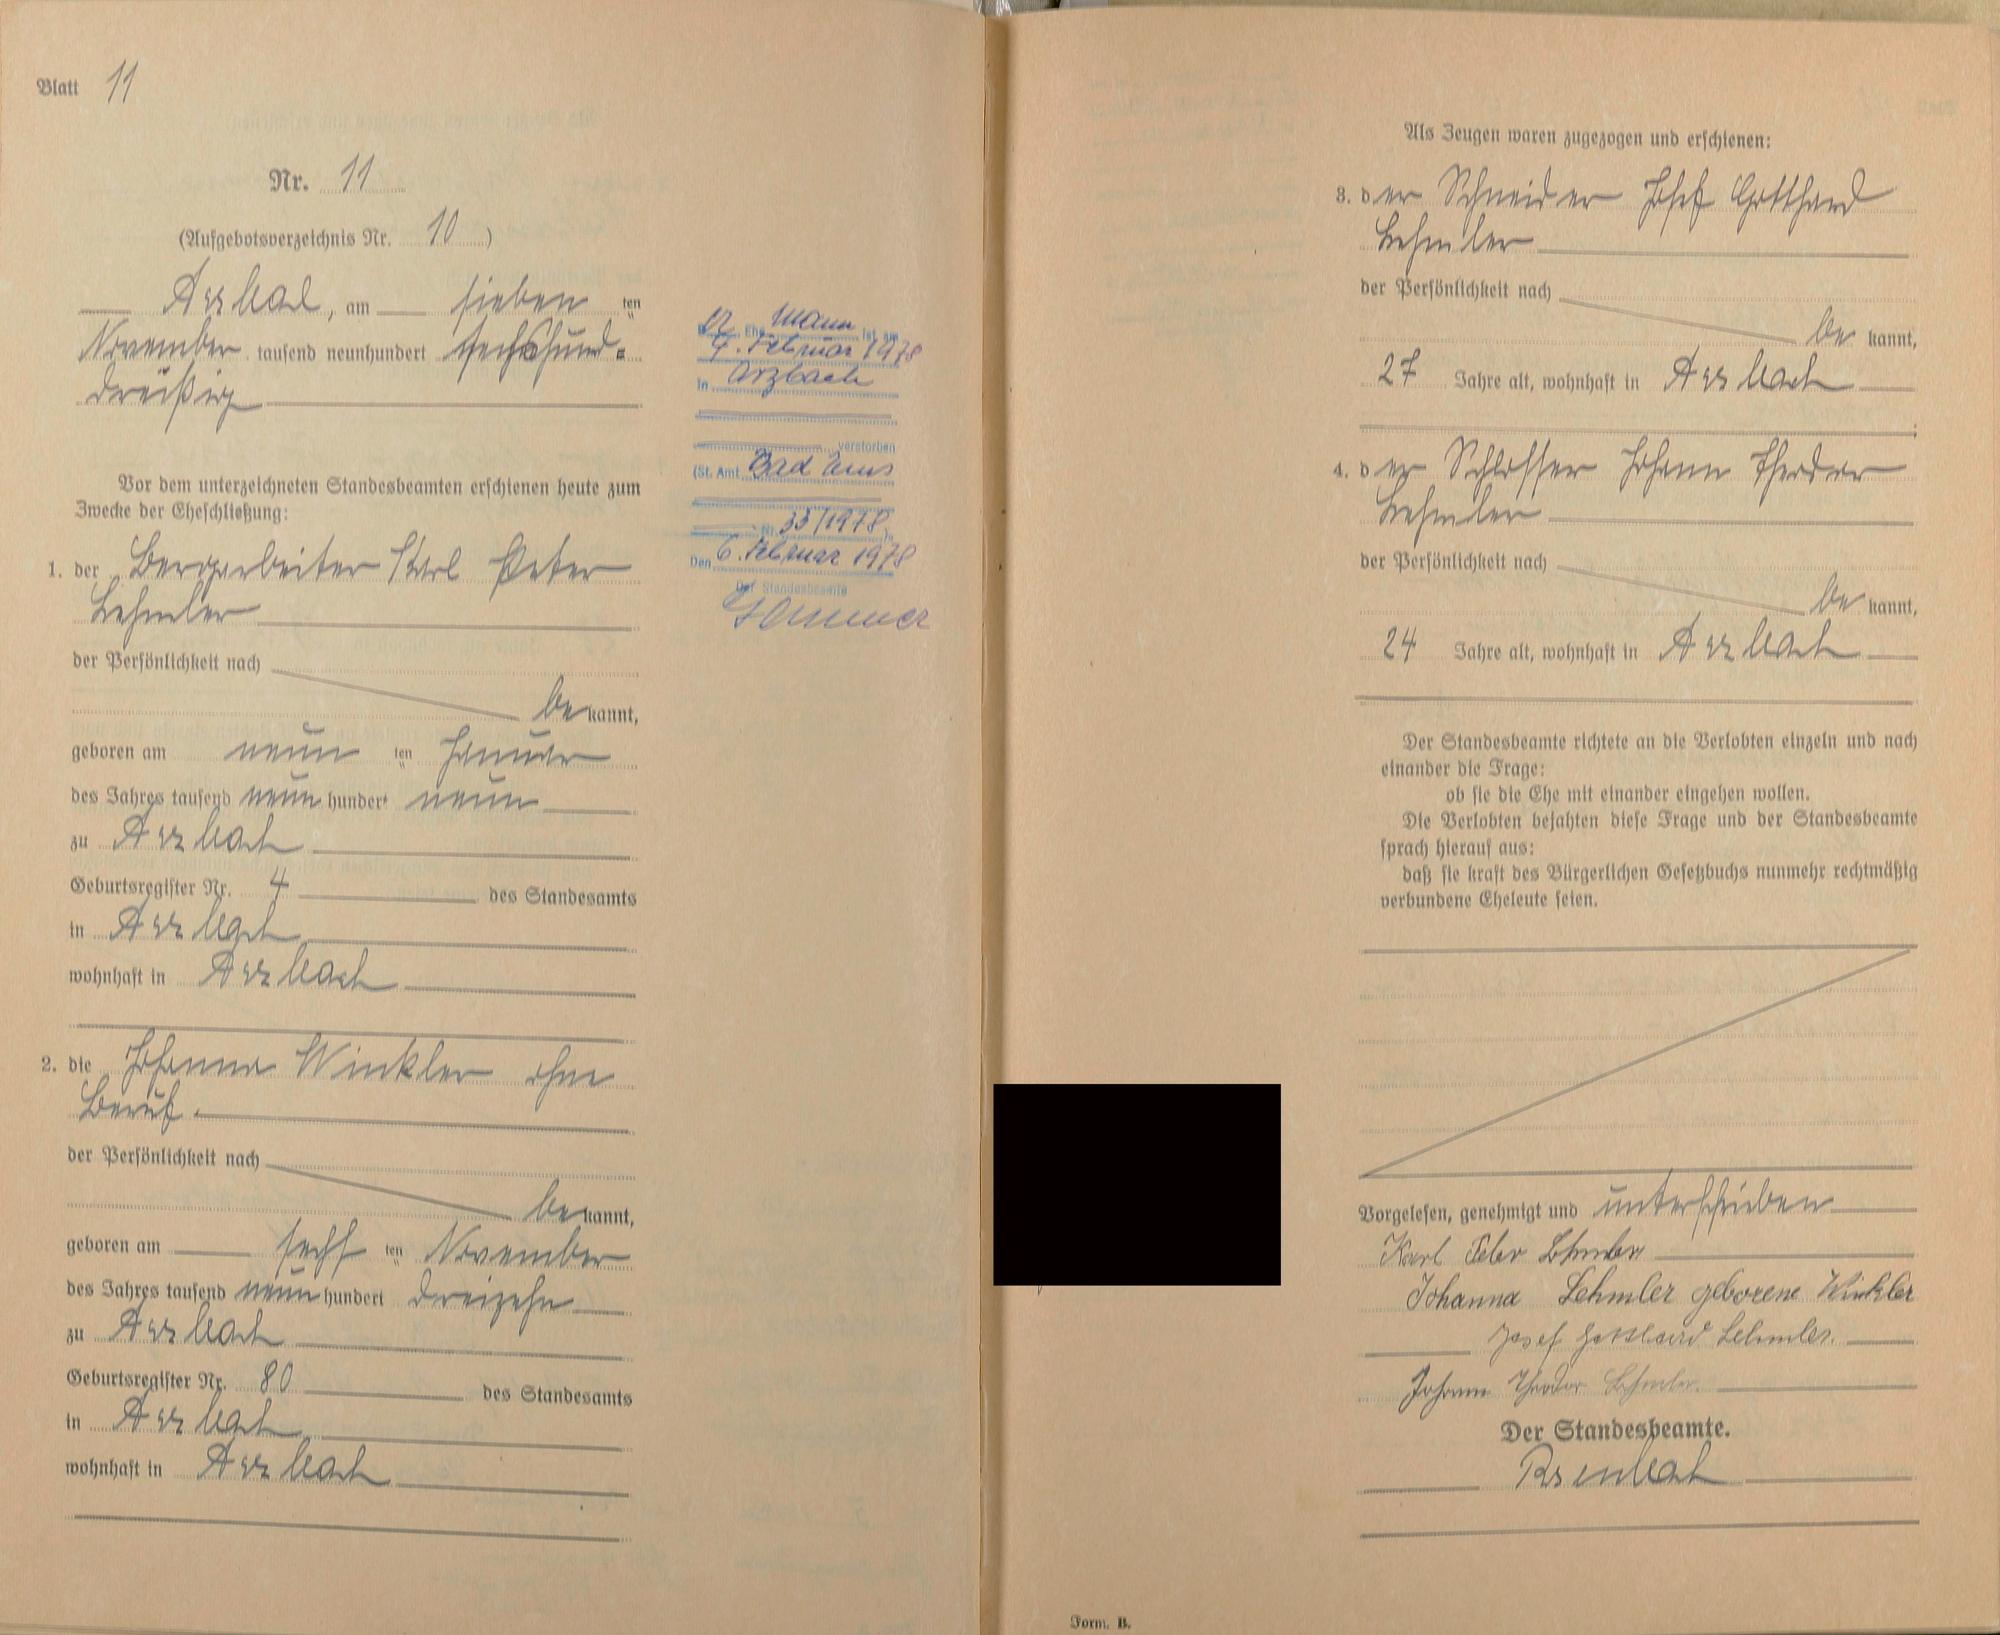 Blatt 11
Nr. 11
(Aufgebotsverzeichnis Nr. 10)
Arzbach, am sieben ten
November tausend neunhundert sechsund-
dreißig
Vor dem unterzeichneten Standesbeamten erschienen heute zum
Zwecke der Eheschließung:
1. der Bergarbeiter Karl Peter
Lehmler
der Persönlichkeit nach
be kannt,
geboren am neun ten Januar
des Jahres tausend neun hundert neun
zu Arzbach
Geburtsregister Nr. 4 des Standesamts
in Arzbach
wohnhaft in Arzbach
2. die Johanna Winkler ohne
Beruf.
der Persönlichkeit nach
be kannt,
geboren am sechs ten November
des Jahres tausend neun hundert dreizehn
zu Arzbach
Geburtsregister Nr. 80 des Standesamts
in Arzbach
wohnhaft in Arzbach
Ehe Mann ist am
4. Februar 1978
in Arzbach
verstorben
(St. Amt Bad Ems
Nr. 33/1978)
Den 6. Februar 1978
Der Standesbeamte
Als Zeugen waren zugezogen und erschienen:
3. der Schneider Josef Gotthard
Lehmler
der Persönlichkeit nach
be kannt,
27 Jahre alt, wohnhaft in Arzbach
;
4. der Schlosser Johann Theodor
Lehmler
der Persönlichkeit nach
be kannt,
24 Jahre alt, wohnhaft in Arzbach
Der Standesbeamte richtete an die Verlobten einzeln und nach
einander die Frage:
ob sie die Ehe mit einander eingehen wollen.
Die Verlobten bejahten diese Frage und der Standesbeamte
sprach hierauf aus:
daß sie kraft des Bürgerlichen Gesetzbuchs nunmehr rechtmäßig
verbundene Eheleute seien.
Vorgelesen, genehmigt und unterschrieben
Karl Peter Lehmler
Johanna Lehmler geborene Winkler
Josef Gotthard Lehmler.
Johann Theodor Lehmler.
Der Standesbeamte.
Form. B.